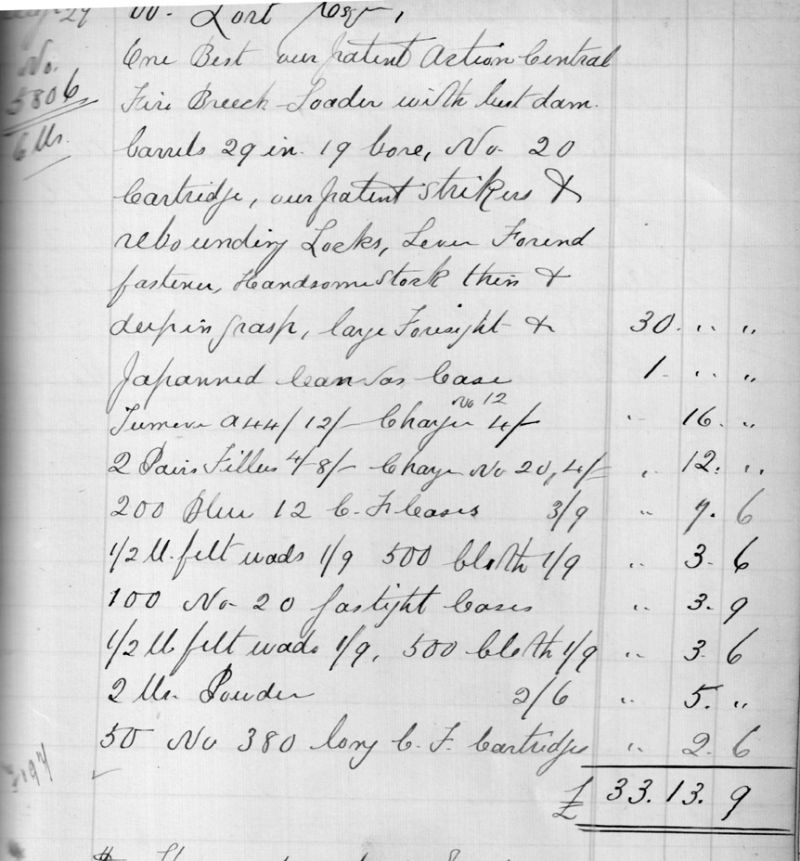 29 W. Lort Esqr,
No. One Best our patent Action Central
5806 Fire Breech-Loader with best dam.
6 lbs. barrels 29 in. 19 bore, No. 20
Cartridge, our patent Strikers &
rebounding Locks, Lever Forend
fastener, Handsome Stock thin &
deep in grasp, large Foresight & 30. " "
Japanned Canvas Case 1. " "
Turnover 12/- Charger No 12 4/- " 16. "
2 Pairs Fillers 4/ 8/- Charger No 20, 4/- " 12. "
200 Blue 12 C. F. Cases 3/9 " 7. 6
1/2 M. felt wads 1/9 500 Cloth 1/9 " 3. 6
100 No. 20 Gastight Cases " 3. 9
1/2 M felt wads 1/9, 500 Cloth 1/9 " 3. 6
2 lbs. Powder 2/6 " 5. "
50 No 380 long C. F. Cartridges " 2. 6
£ 33. 13. 9